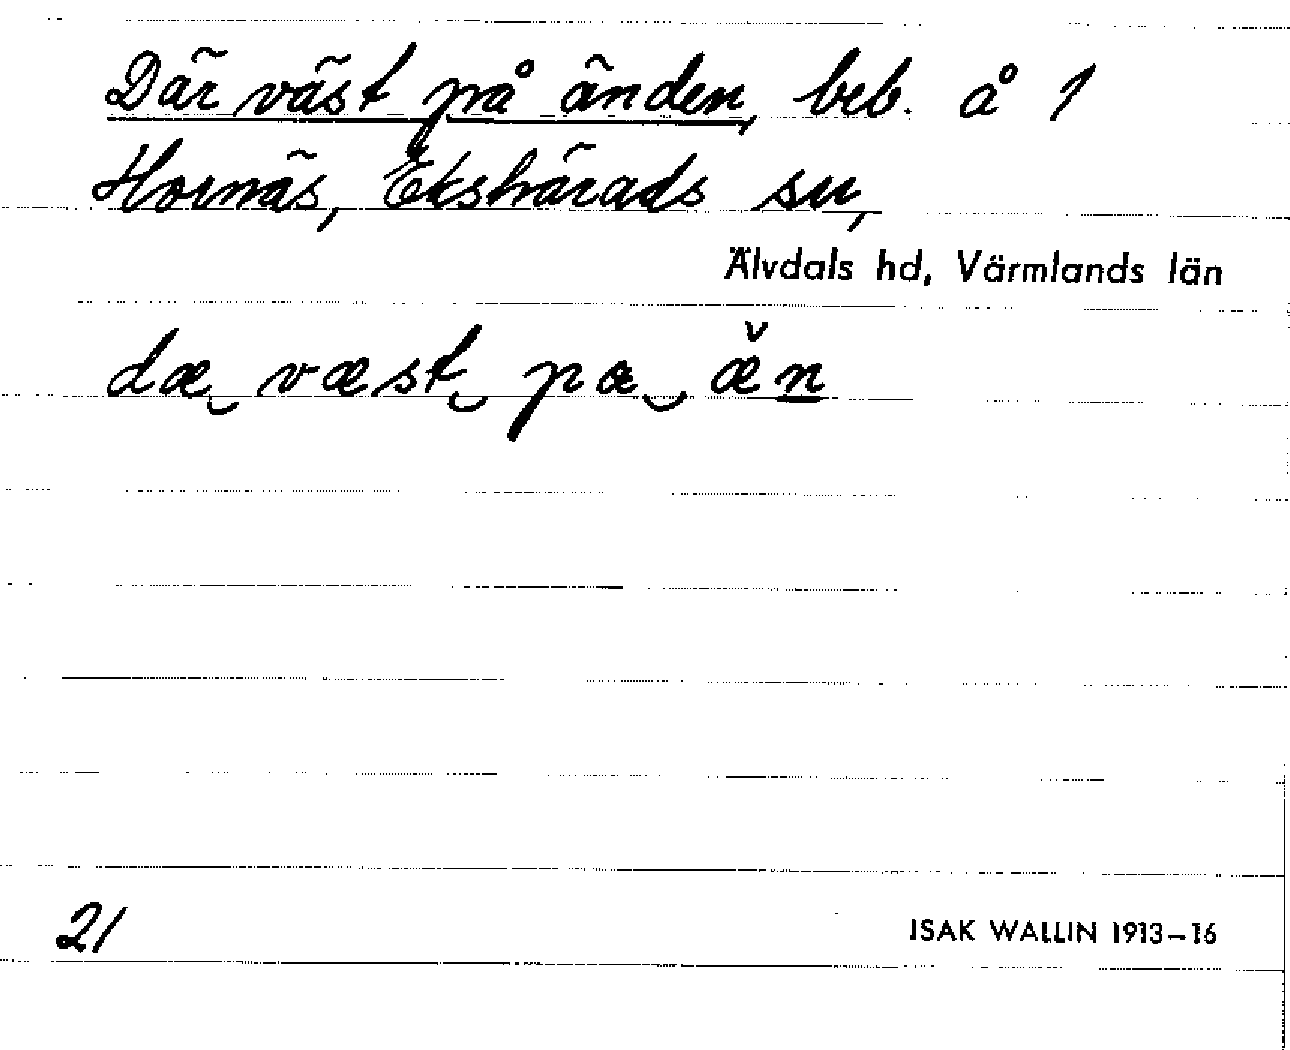 Där väst på änden, beb. å 1
Hornäs, Ekshärads sn,
Älvdals hd, Värmlands län
dæ‿ væst‿ pa‿ æ̌n̲
21
ISAK WALLIN 1913–16